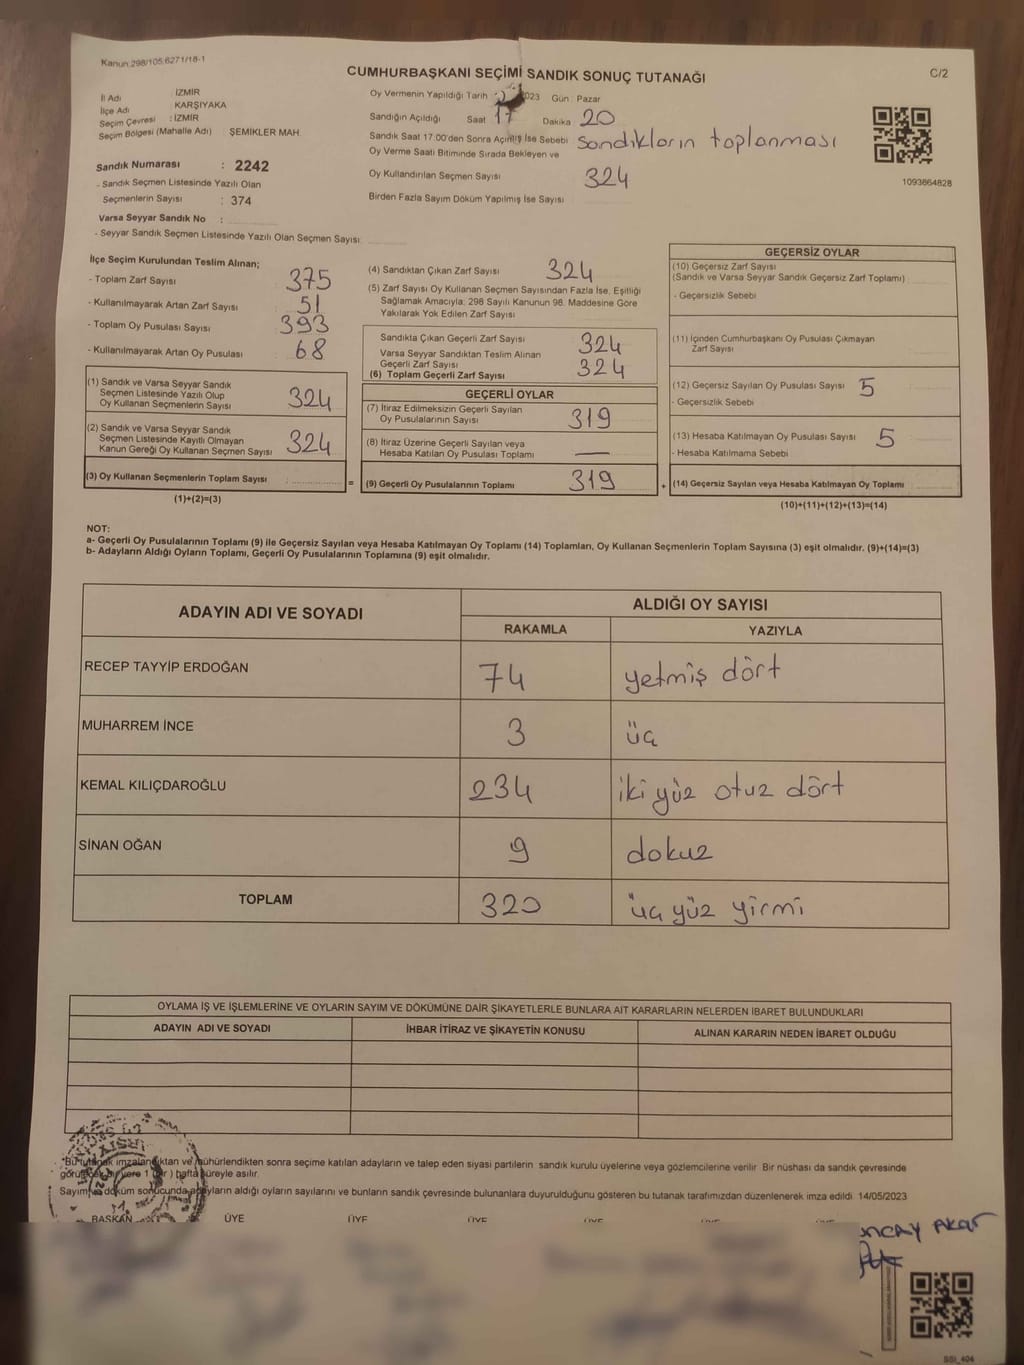 Kanun:298/105.6271/18-1
CUMHURBAŞKANI SEÇİMİ SANDIK SONUÇ TUTANAĞI
C/2
İl Adı : İZMİR
İlçe Adı : KARŞIYAKA
Seçim Çevresi : İZMİR
Seçim Bölgesi (Mahalle Adı) : ŞEMİKLER MAH.
Sandık Numarası : 2242
- Sandık Seçmen Listesinde Yazılı Olan
Seçmenlerin Sayısı : 374
Varsa Seyyar Sandık No :
- Seyyar Sandık Seçmen Listesinde Yazılı Olan Seçmen Sayısı:
Oy Vermenin Yapıldığı Tarih 023 Gün : Pazar
Sandığın Açıldığı Saat 17 Dakika 20
Sandık Saat 17.00'den Sonra Açılmış İse Sebebi Sandıkların toplanması
Oy Verme Saati Bitiminde Sırada Bekleyen ve
Oy Kullandırılan Seçmen Sayısı 324
Birden Fazla Sayım Döküm Yapılmış İse Sayısı
1093664828
İlçe Seçim Kurulundan Teslim Alınan;
- Toplam Zarf Sayısı : 375
- Kullanılmayarak Artan Zarf Sayısı : 51
- Toplam Oy Pusulası Sayısı : 393
- Kullanılmayarak Artan Oy Pusulası : 68
(1) Sandık ve Varsa Seyyar Sandık
Seçmen Listesinde Yazılı Olup
Oy Kullanan Seçmenlerin Sayısı 324
(2) Sandık ve Varsa Seyyar Sandık
Seçmen Listesinde Kayıtlı Olmayan
Kanun Gereği Oy Kullanan Seçmen Sayısı 324
(3) Oy Kullanan Seçmenlerin Toplam Sayısı =
(1)+(2)=(3)
(4) Sandıktan Çıkan Zarf Sayısı 324
(5) Zarf Sayısı Oy Kullanan Seçmen Sayısından Fazla İse, Eşitliği
Sağlamak Amacıyla; 298 Sayılı Kanunun 98. Maddesine Göre
Yakılarak Yok Edilen Zarf Sayısı
Sandıkta Çıkan Geçerli Zarf Sayısı 324
Varsa Seyyar Sandıktan Teslim Alınan
Geçerli Zarf Sayısı
(6) Toplam Geçerli Zarf Sayısı 324
GEÇERLİ OYLAR
(7) İtiraz Edilmeksizin Geçerli Sayılan
Oy Pusulalarının Sayısı 319
(8) İtiraz Üzerine Geçerli Sayılan veya
Hesaba Katılan Oy Pusulası Toplamı —
(9) Geçerli Oy Pusulalarının Toplamı 319 +
GEÇERSİZ OYLAR
(10) Geçersiz Zarf Sayısı
(Sandık ve Varsa Seyyar Sandık Geçersiz Zarf Toplamı)
- Geçersizlik Sebebi
(11) İçinden Cumhurbaşkanı Oy Pusulası Çıkmayan
Zarf Sayısı
(12) Geçersiz Sayılan Oy Pusulası Sayısı 5
- Geçersizlik Sebebi
(13) Hesaba Katılmayan Oy Pusulası Sayısı 5
- Hesaba Katılmama Sebebi
(14) Geçersiz Sayılan veya Hesaba Katılmayan Oy Toplamı
(10)+(11)+(12)+(13)=(14)
NOT:
a- Geçerli Oy Pusulalarının Toplamı (9) ile Geçersiz Sayılan veya Hesaba Katılmayan Oy Toplamı (14) Toplamları, Oy Kullanan Seçmenlerin Toplam Sayısına (3) eşit olmalıdır. (9)+(14)=(3)
b- Adayların Aldığı Oyların Toplamı, Geçerli Oy Pusulalarının Toplamına (9) eşit olmalıdır.
ADAYIN ADI VE SOYADI ALDIĞI OY SAYISI
RAKAMLA YAZIYLA
RECEP TAYYİP ERDOĞAN 74 yetmiş dört
MUHARREM İNCE 3 üç
KEMAL KILIÇDAROĞLU 234 iki yüz otuz dört
SİNAN OĞAN 9 dokuz
TOPLAM 320 üç yüz yirmi
OYLAMA İŞ VE İŞLEMLERİNE VE OYLARIN SAYIM VE DÖKÜMÜNE DAİR ŞİKAYETLERLE BUNLARA AİT KARARLARIN NELERDEN İBARET BULUNDUKLARI
ADAYIN ADI VE SOYADI İHBAR İTİRAZ VE ŞİKAYETİN KONUSU ALINAN KARARIN NEDEN İBARET OLDUĞU
*Bu tutanak imzalandıktan ve mühürlendikten sonra seçime katılan adayların ve talep eden siyasi partilerin sandık kurulu üyelerine veya gözlemcilerine verilir. Bir nüshası da sandık çevresinde
1 (bir) hafta süreyle asılır.
Sayım ve döküm sonucunda adayların aldığı oyların sayılarını ve bunların sandık çevresinde bulunanlara duyurulduğunu gösteren bu tutanak tarafımızdan düzenlenerek imza edildi. 14/05/2023
BAŞKAN ÜYE ÜYE ÜYE
AKar
SSI_404